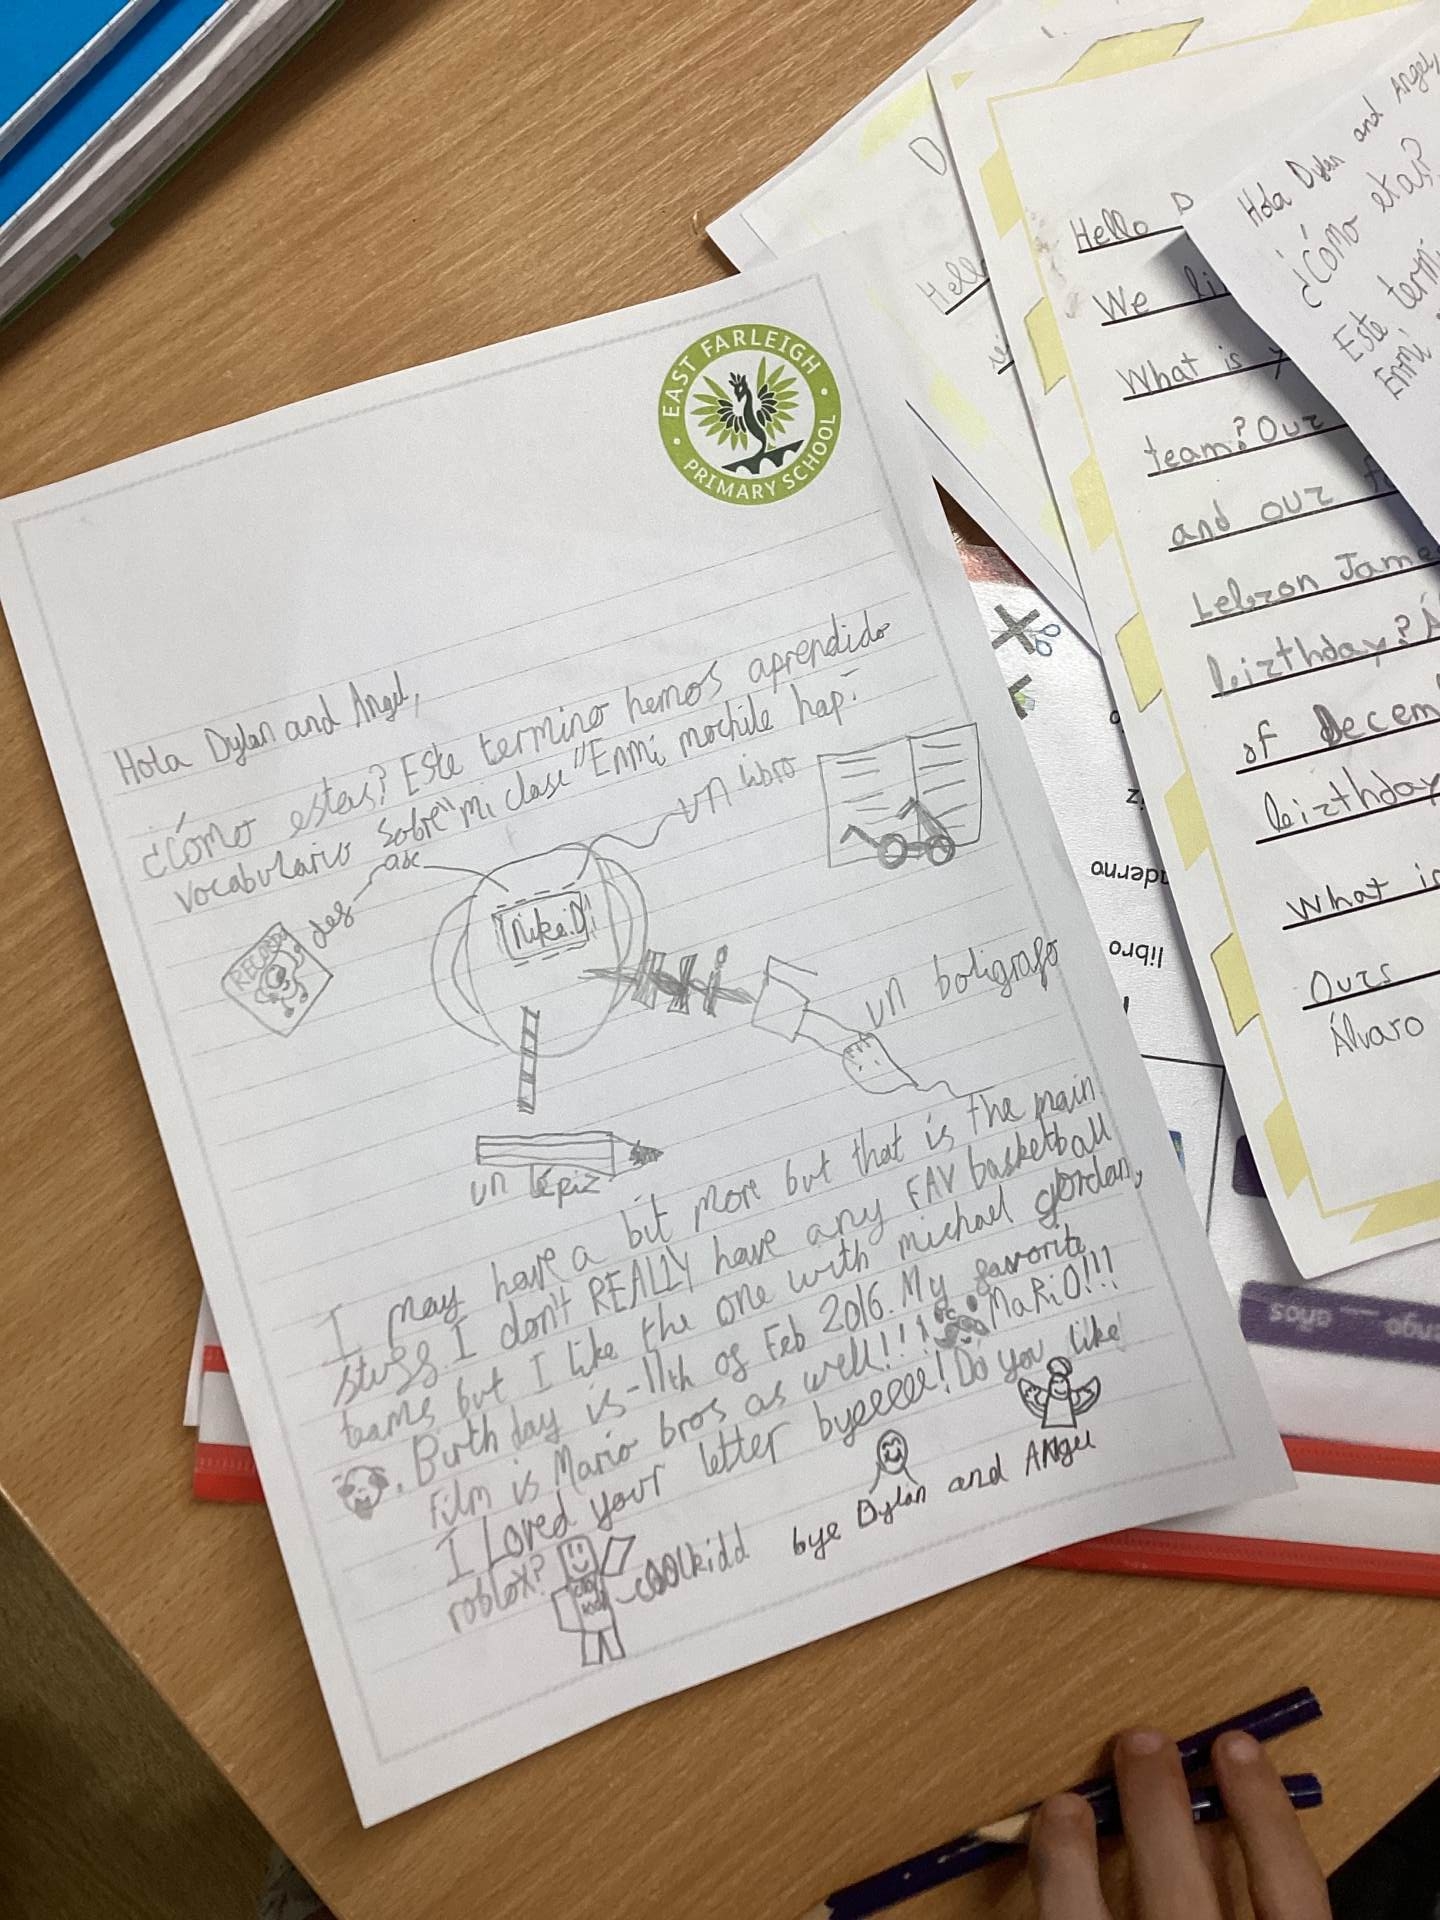 EAST FARLEIGH
PRIMARY SCHOOL
Hola Dylan and Angel,
¿Cómo estas? Este termino hemos aprendido
vocabulario Sobre "mi clase" Enmi mochile hap:
un libro
Nike
un boligrafo
un lépiz
I may have a bit more but that is the main
stuff I don't REALLY have any FAV basketball
teams but I like the one with michael jordan,
. Birthday is -11th of Feb 2016. My favorite
Film is Mario bros as well!!! MaRiO!!!
I Loved your letter byeeeee! Do you like
roblox?
coolkidd bye Dylan and ANgel
D
Hello
Hello D
We li
What is y
team? Our
and our f
Lebron Jame
birthday? Á
of Decem
birthday
What is
Ours
Álvaro
Hola Dylan and Angel,
¿Cómo estas?
Este termi
Enmi
derno
libro
engo __ años